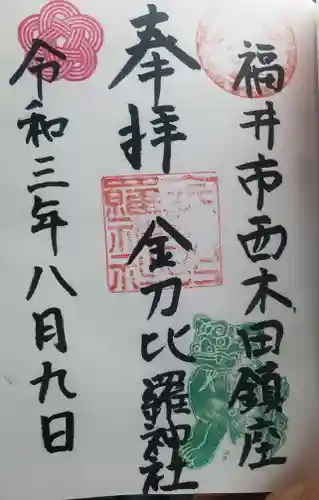 福井市西木田鎮座
奉拝
金刀比羅神社
令和三年八月九日